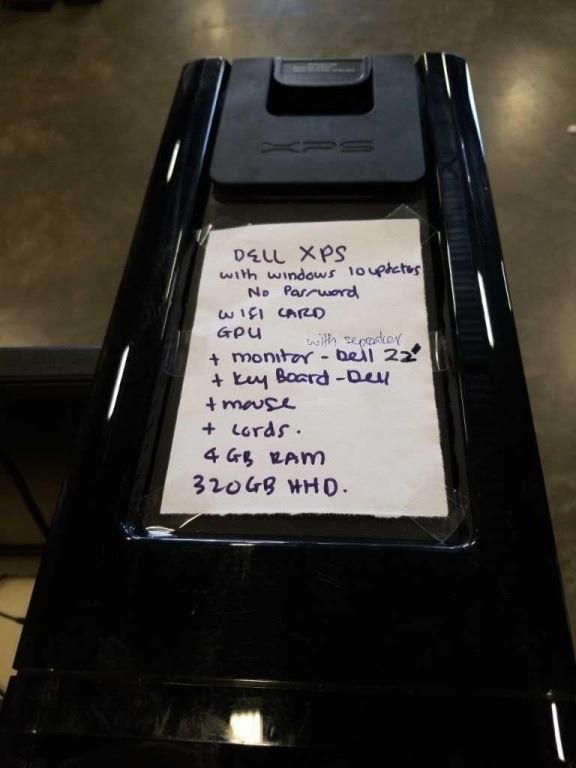 XPS
DELL XPS
with windows 10 updates
No Password
WIFI CARD
GPU
with sepeaker
+ monitor - Dell 22"
+ Key Board - Dell
+ mouse
+ cords.
4 GB RAM
320GB HHD.